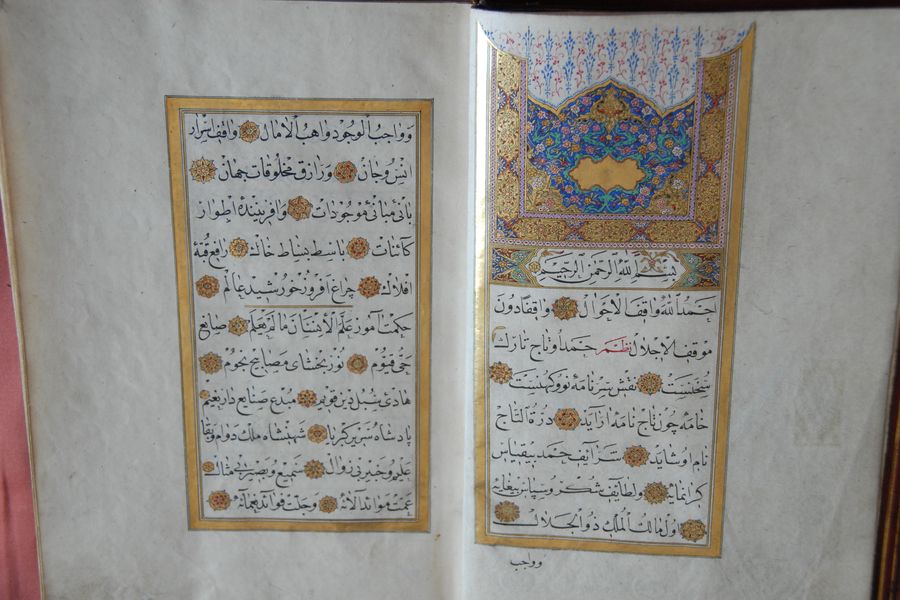 بسم الله الرحمن الرحيم
احمد الله واقف الاحوال واقفا دون
موقف الاجلال نظم حمد او تاج تارك
سخنست نقش سر نامه نو و كهنست
خامه چون تاج نامه ارايد درة التاج
نام او شايد شرايف حمد بيقياس
كرانمايه ولطايف شكر و سپاس بيغايه
اول مالك الملك ذو الجلال
وواجب
وواجب الوجود واهب الامال واقف اسرار
انس وجان ورازق مخلوقات جهان
بانئ مبانئ موجودات وافرينندۀ اطوار
كائنات باسط بساط خاك رافع قبۀ
افلاك چراغ افروز خورشيد عالم
حكمت آموز علم الانسان ما لم يعلم صانع
حى قيوم نور بخشاى مصابيح نجوم
هادئ سبل دين قويم مبدع صنايع دار نعيم
پادشاه سرير كبريا شهنشاه ملك دوام وبقا
عليم وخبير بى زوال سميع وبصير بى مثال
عمت موائد آلائه وجلت فوائد نعمائه